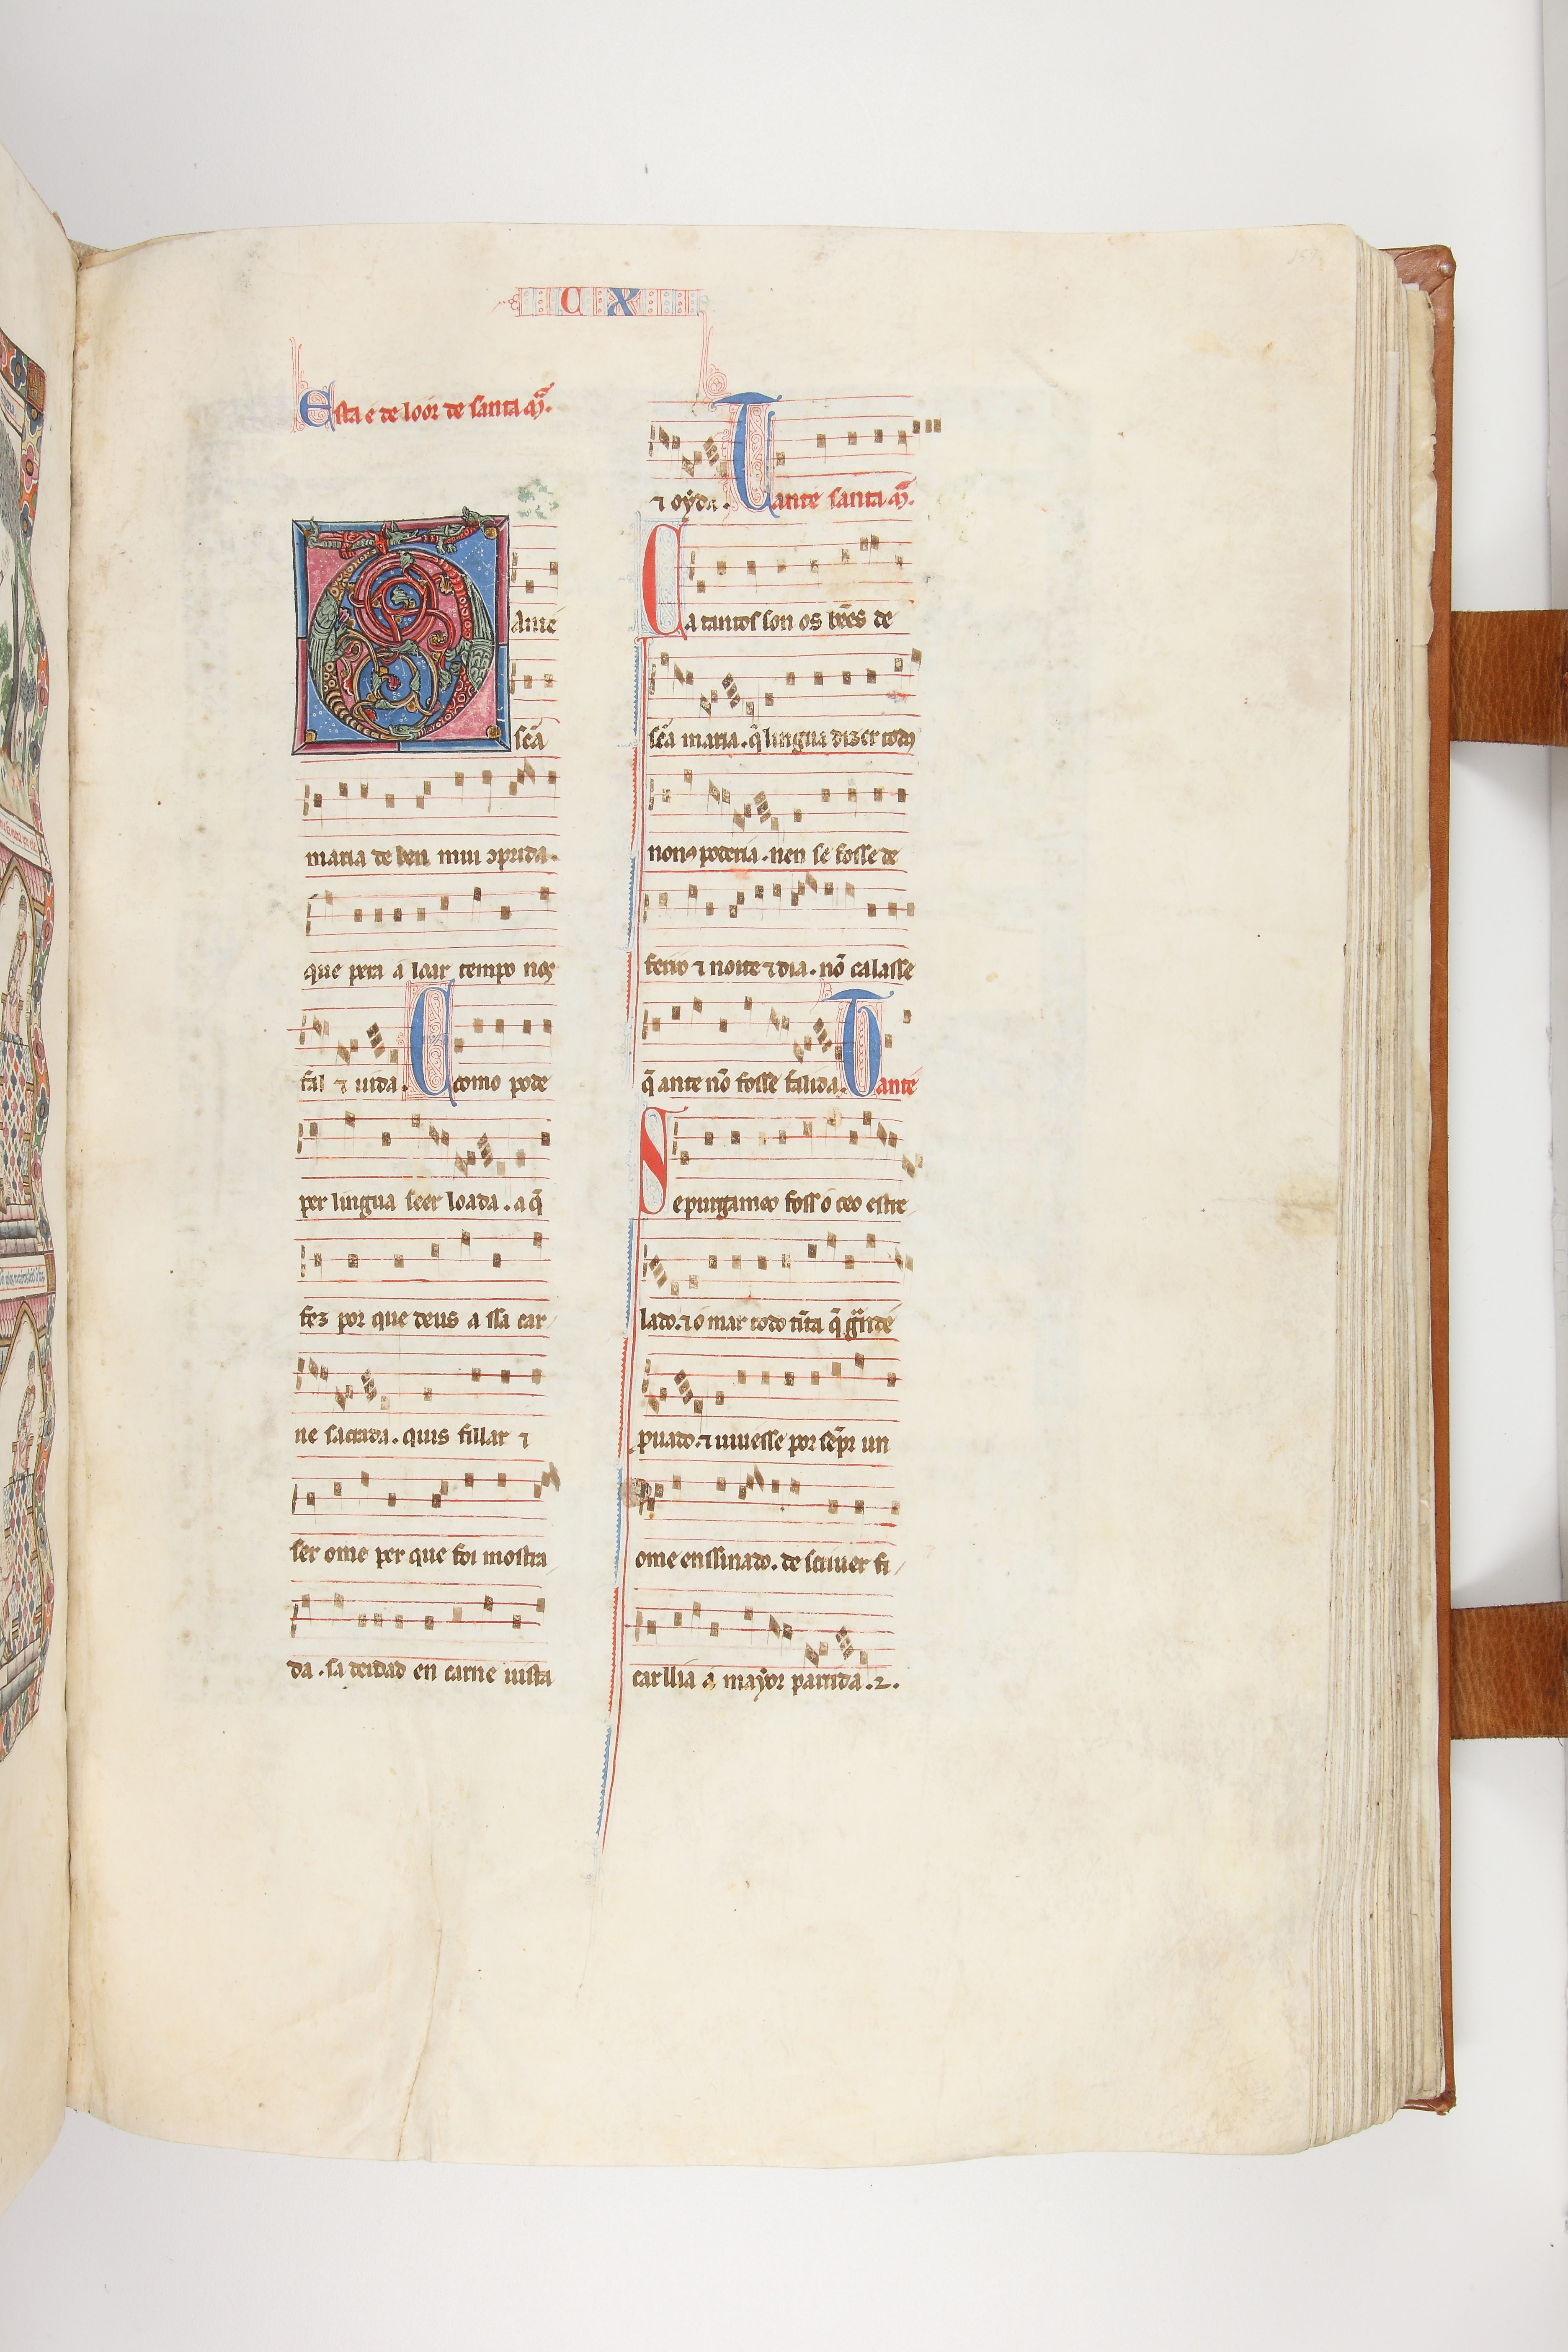 C X
Esta é de loor de santa mã.
Tante
sc̃a
maria de ben mui ꝯprida.
que pera a loar tempo nos
fal ⁊ uida. E como pode
per lingua seer loada. a q̃
fez por que deus a ssa car
ne sagrada. quis fillar ⁊
ser ome per que foi mostra
da. sa deidad en carne uista
⁊ oyda. Tante santa mã.
Ca tantos son os bẽes de
sc̃a maria. q̃ lingua dizer todꝯ
nonꝯ poderia. nen se fosse de
ferro ⁊ noite ⁊ dia. nõ calasse
q̃ ante nõ fosse falida. Tante
Se purgamẽo foss o ceo estre
lado. ⁊ o mar todo tĩta q̃ grãde
prouado. ⁊ uiuesse por sẽpr un
ome enssinado. de scriuer fi
carllia a mayor partida. 2.